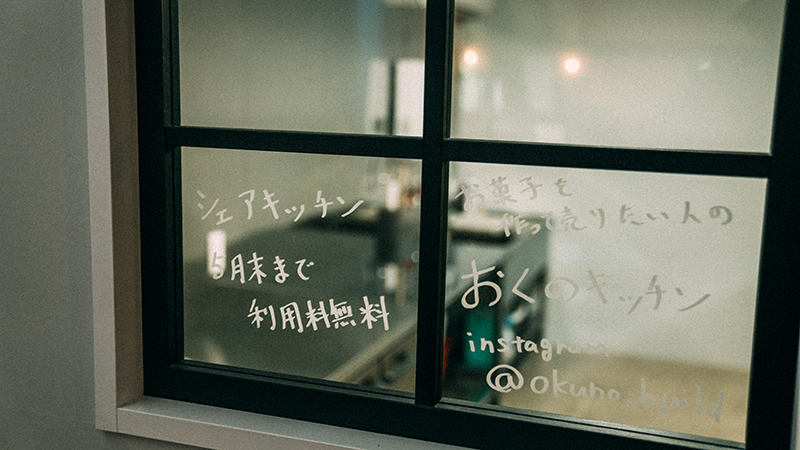 シェアキッチン
5月末まで
利用料無料
お菓子を
作って売りたい人の
おくのキッチン
instagram
@okuno.build